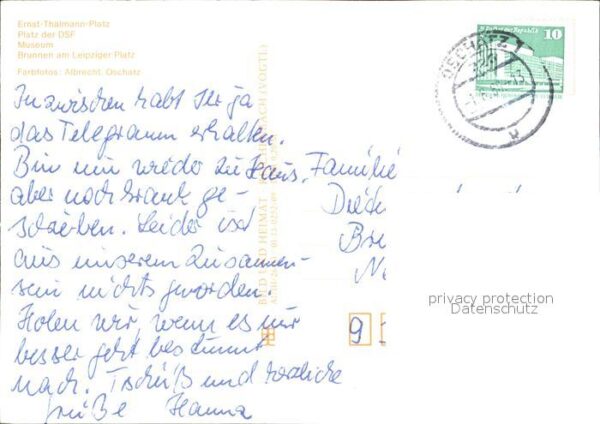 Ernst-Thälmann-Platz
Platz der DSF
Museum
Brunnen am Leipziger Platz
Farbfotos: Albrecht, Oschatz
Inzwischen habt Ihr ja
das Telegramm erhalten.
Bin nun wieder zu Haus,
aber noch krank ge-
schrieben. Leider ist
aus unserem Zusammen-
sein nichts geworden.
Holen wir, wenn es mir
besser geht bestimmt
nach. Tschüß und herzliche
Grüße Hanna
BILD UND HEIMAT REICHENBACH (VOGTL)
OSCHATZ 1
10
Familie
Bre
Ne
9
privacy protection
Datenschutz